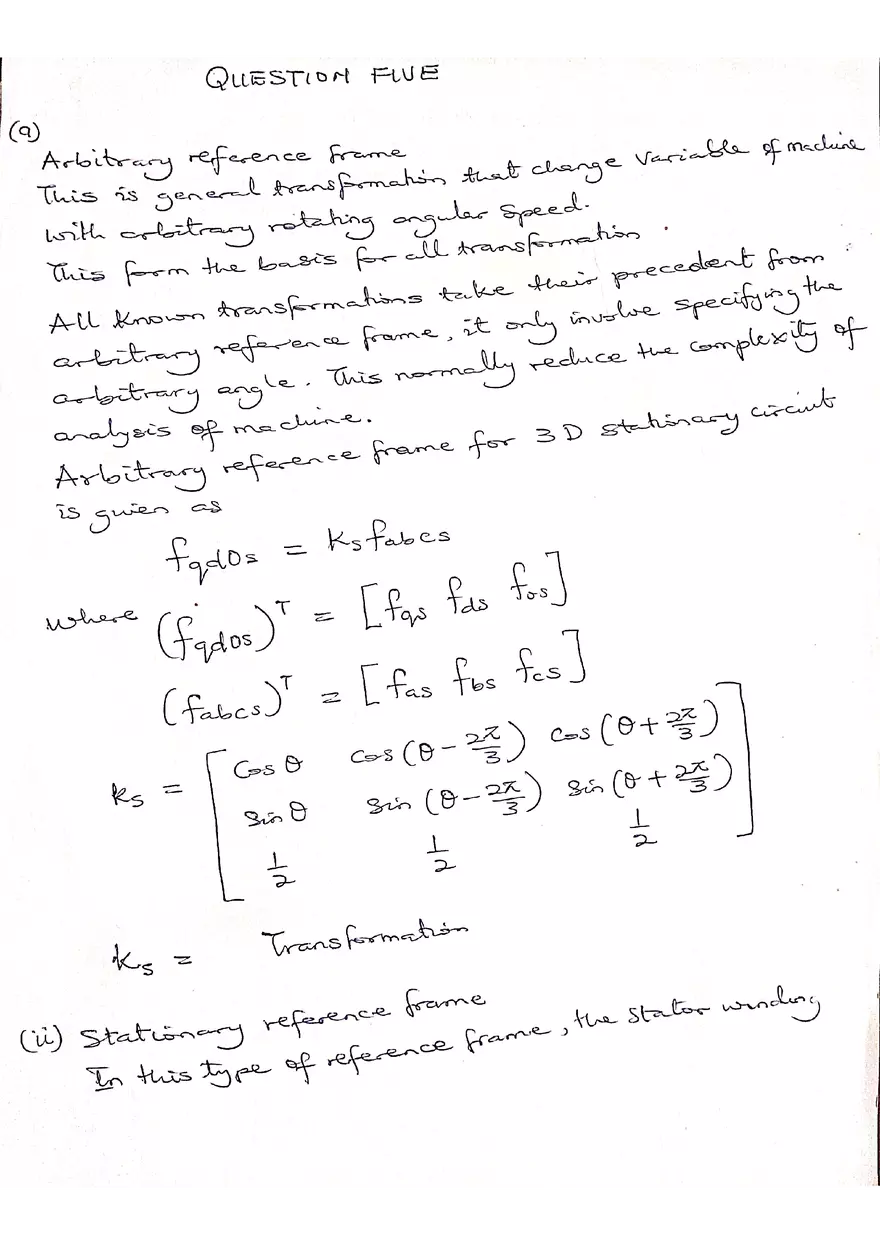 QUESTION FIVE
(a)
Arbitrary reference frame
This is general transformation that change variable of machine
with arbitrary rotating angular speed.
This form the basis for all transformation.
All known transformations take their precedent from
arbitrary reference frame, it only involve specifying the
arbitrary angle. This normally reduce the complexity of
analysis of machine.
Arbitrary reference frame for 3D stationary circuit
is given as
fqd0s = Ks fabcs
where (fqdos)ᵀ = [fqs fds fos]
(fabcs)ᵀ = [fas fbs fcs]
ks = [ Cos θ cos (θ - 2π/3) cos (θ + 2π/3)
Sin θ sin (θ - 2π/3) sin (θ + 2π/3)
1/2 1/2 1/2 ]
ks = Transformation
(ii) Stationary reference frame
In this type of reference frame, the stator winding